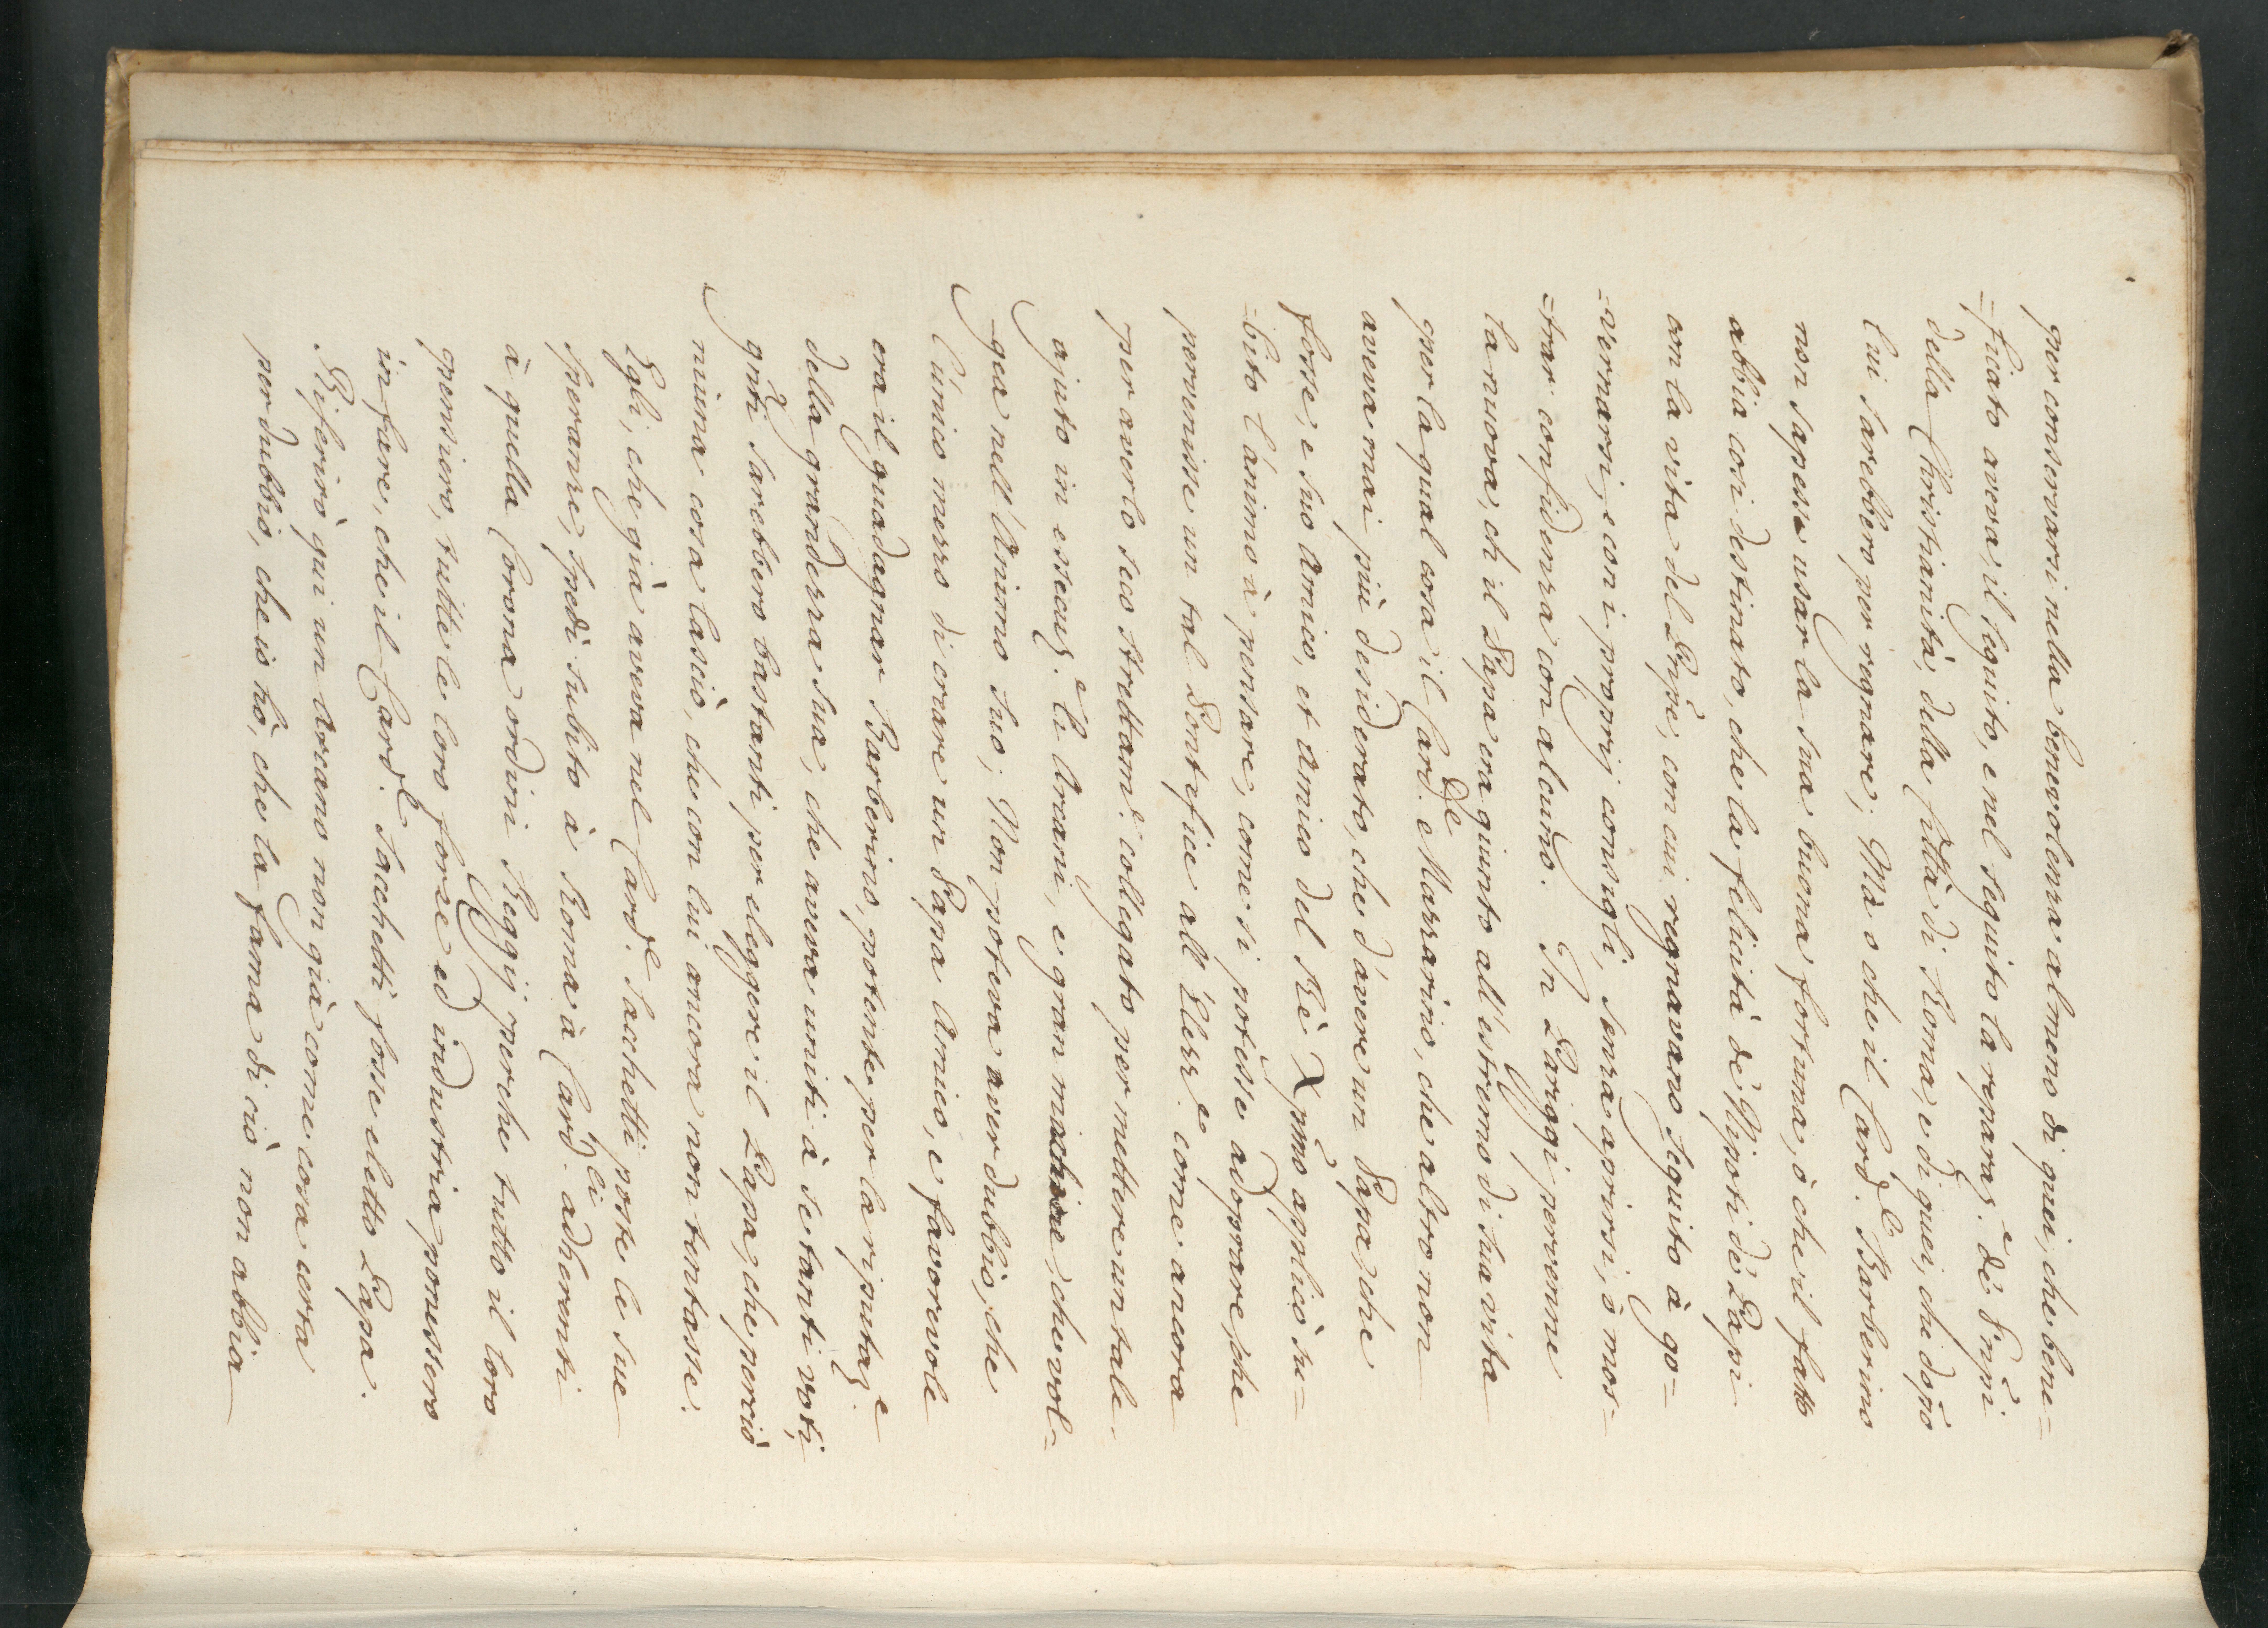 per conservarsi nella benevolenza almeno di quei, che bene=
=ficato aveva, il seguito, e nel seguito la reparaz.e dè Prñpi
della Christianità, della Città di Roma, e di quei, che dopo
lui sarebbero per regnare; Mà o che il Card.l Barberino
non sapesse usar la sua buona fortuna, ò che il fatto
abbia così destinato, che la felicità dè Nipoti dè Papi
con la vita del Prñpe, con cui regnavano seguito à go=
=vernarsi, e con i proprij consigli, senza aprirsi, ò mos=
=trar confidenza con alcuno. In Pariggi pervenne
la nuova, ch il Papa era giunto all'estremo di sua vita
per la qual cosa il Card.le Mazzarino, che altro non
aveva mai più desiderato, che d'avere un Papa, che
fosse, e suo Amico, et Amico del Rè Xp̃mo applicò su=
=bito l'animo à pensare, come si potesse adoprare, che
pervenisse un tal Pontefice all'Elez.e come ancora
per averlo seco strettam.e collegato per mettere un tale
ajuto in essecuz.e li Arcani, e gran machine, che vol=
gea nell'Animo suo; Non poteva aver dubbio, che
l'único mezzo di creare un Papa Amico, e favorevole
era il guadagnar Barberino, potente per la riputaz.e
della grandezza sua, che aveva uniti à se tanti voti,
q̃nti sarebbero bastanti per eleggere il Papa, che perciò
niuna cosa lasciò, che con lui ancora non tentasse.
Egli, che già aveva nel Card.e Sacchetti poste le sue
speranze, spedì subito à Roma à Card.li adherenti
à quella Corona ordini Reggij perche tutto il loro
pensiero, tutte le loro forze ed industria ponessero
in fare, che il Card.l Sacchetti fosse eletto Papa.
Riferirò quì un Arcano non già come cosa certa
per dubbio, che io hò, che la fama di ciò non abbia